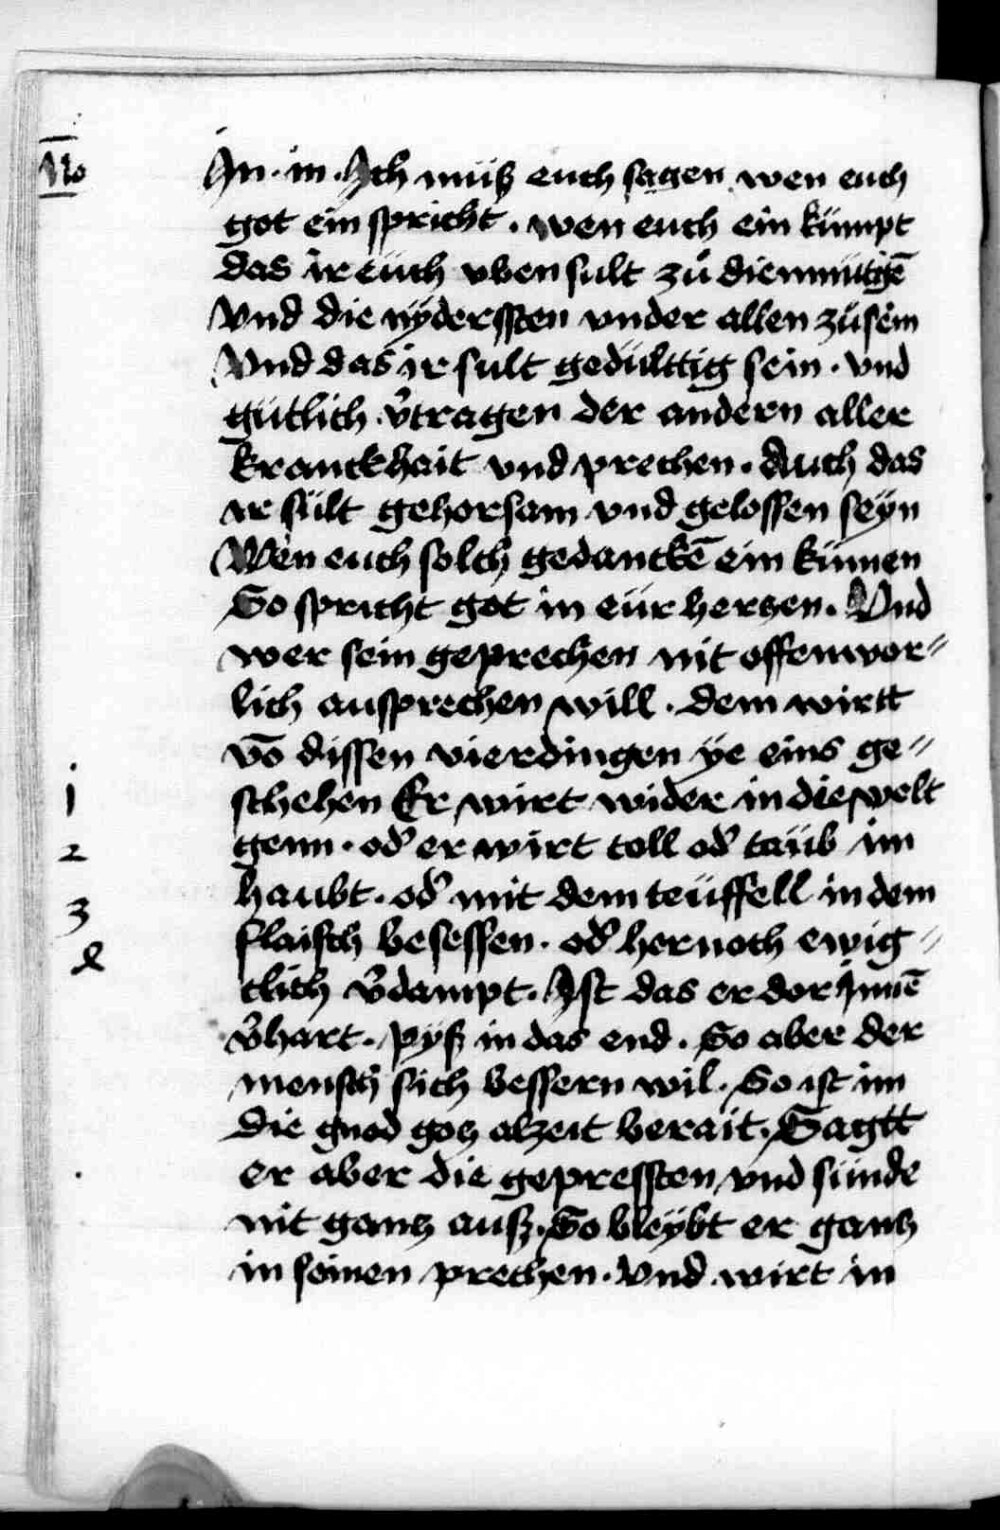 No
In · m · Ich müß euch sagen wen euch
got ein spricht . wen euch ein kümpt
das ir eüch vben sult zů diemmütigē
Vnd die nÿdersten vnder allen zůsein
Vnd das ir sult gedülttig sein · vnd
gütlich v̓tragen der andern aller
kranckhait vnd prechen · Auch das
ir sült gehorsam vnd gelossen seÿn
Wen euch solch gedanckē ein kümen
So spricht got in eür hertzen · Vnd
wer sein geprechen nit offenwor〃
lich aussprechen will · dem wirtt
vō dissen vierdingen ÿe eins ge〃
1 schehen Er wirt wider in die welt
2 genn · od̓ er wirt toll od̓ taüb im
3 haubt · od̓ mit dem teüffell in dem
4 flaisch besessen · od̓ her noch ewig〃
clich v̓dampt · Ist das er dor Innē
v̓hart · pÿß in das end · So aber der
mensch sich bessern wil · So ist im
die gnod gotz alzeit berait · Sagtt
er aber die gepressten vnd sünde
nit gantz auß · So bleÿbt er gantz
in seinen prechen · Vnd wirt in